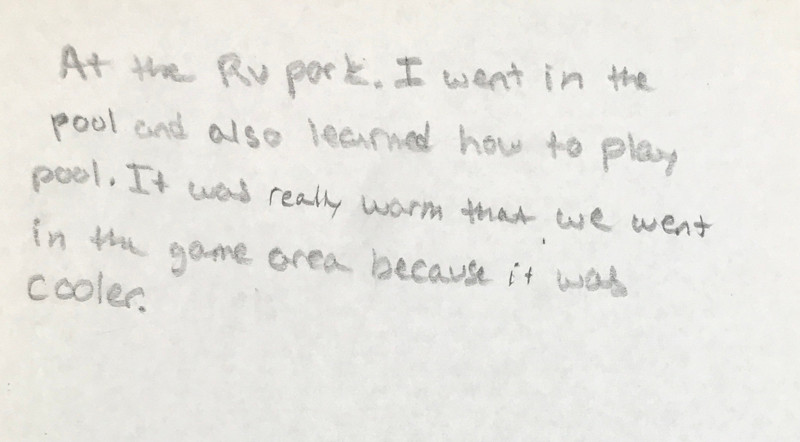 At the Rv park. I went in the
pool and also learned how to play
pool. It was really warm that we went
in the game area because it was
cooler.